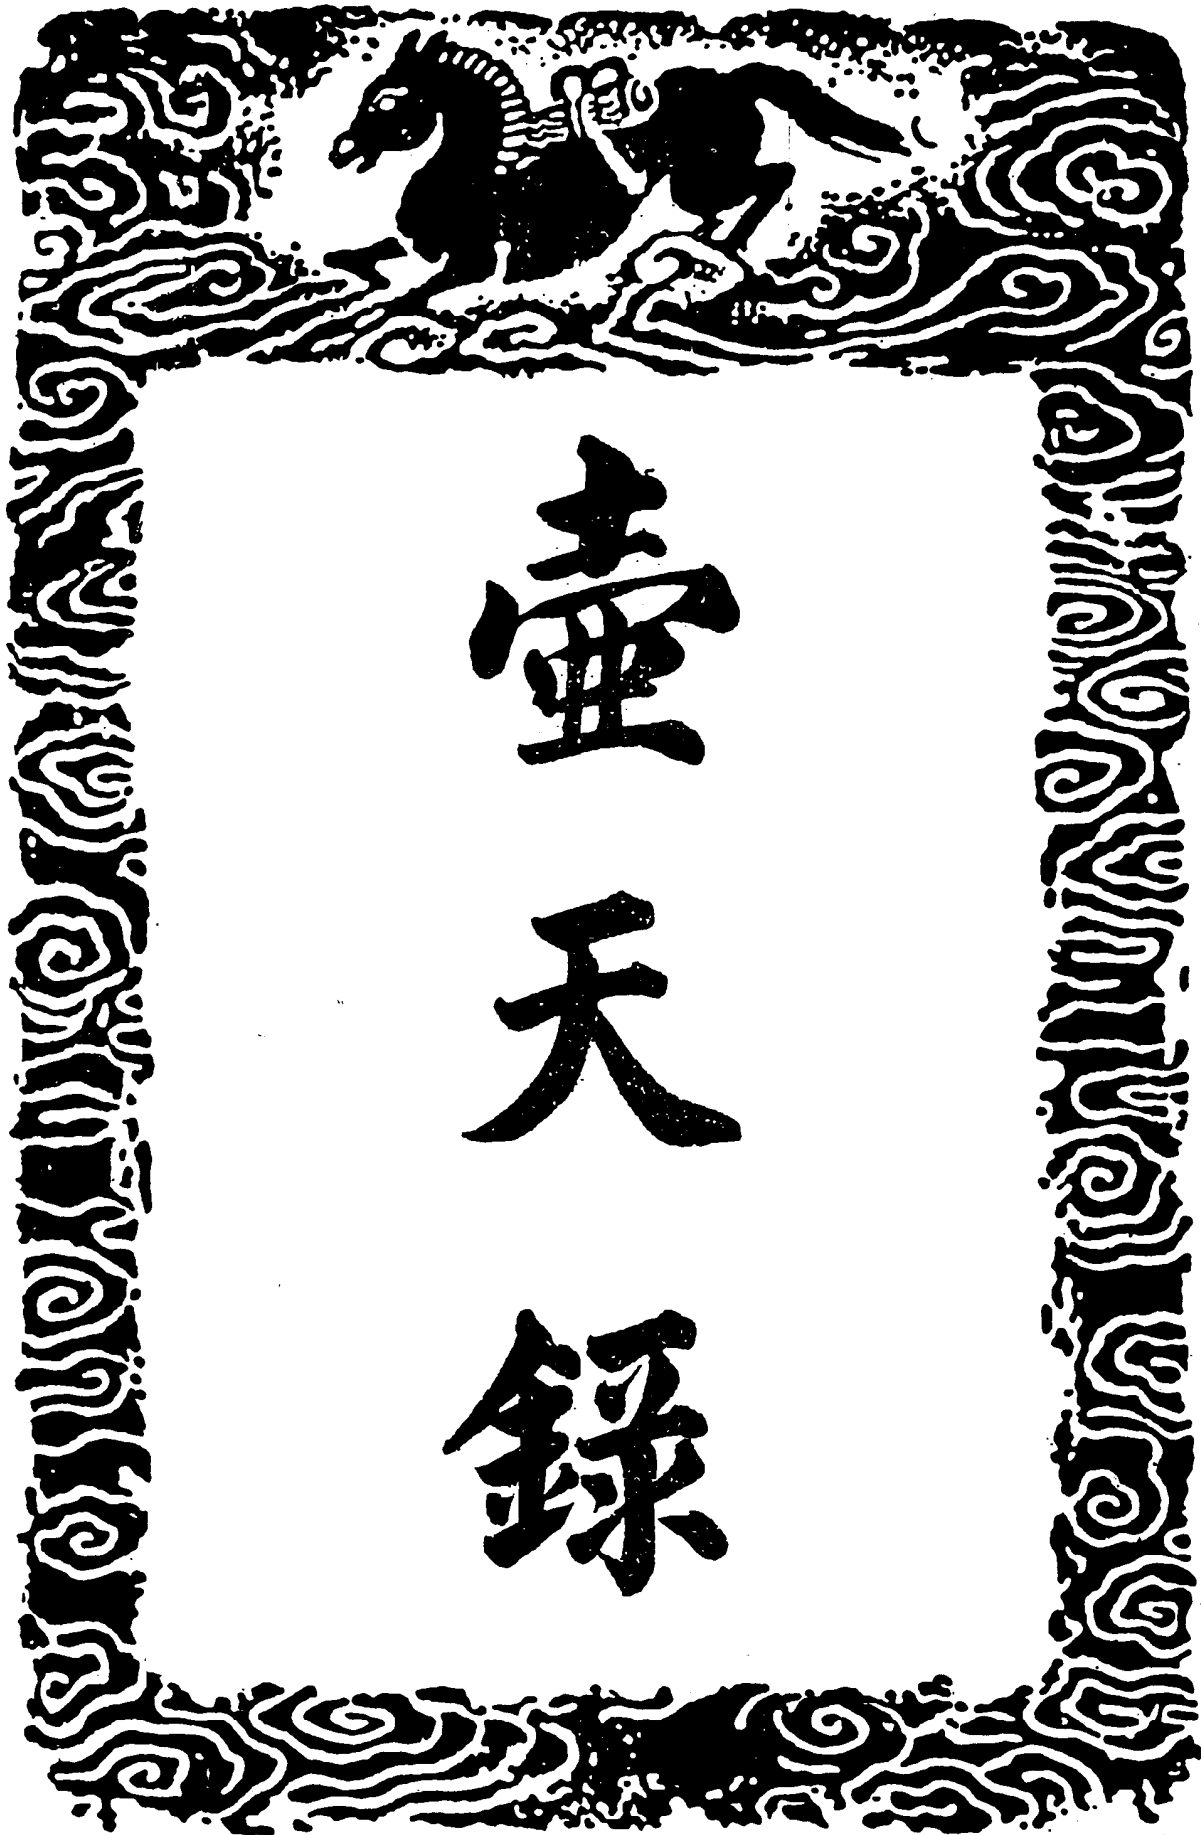 壺天錄